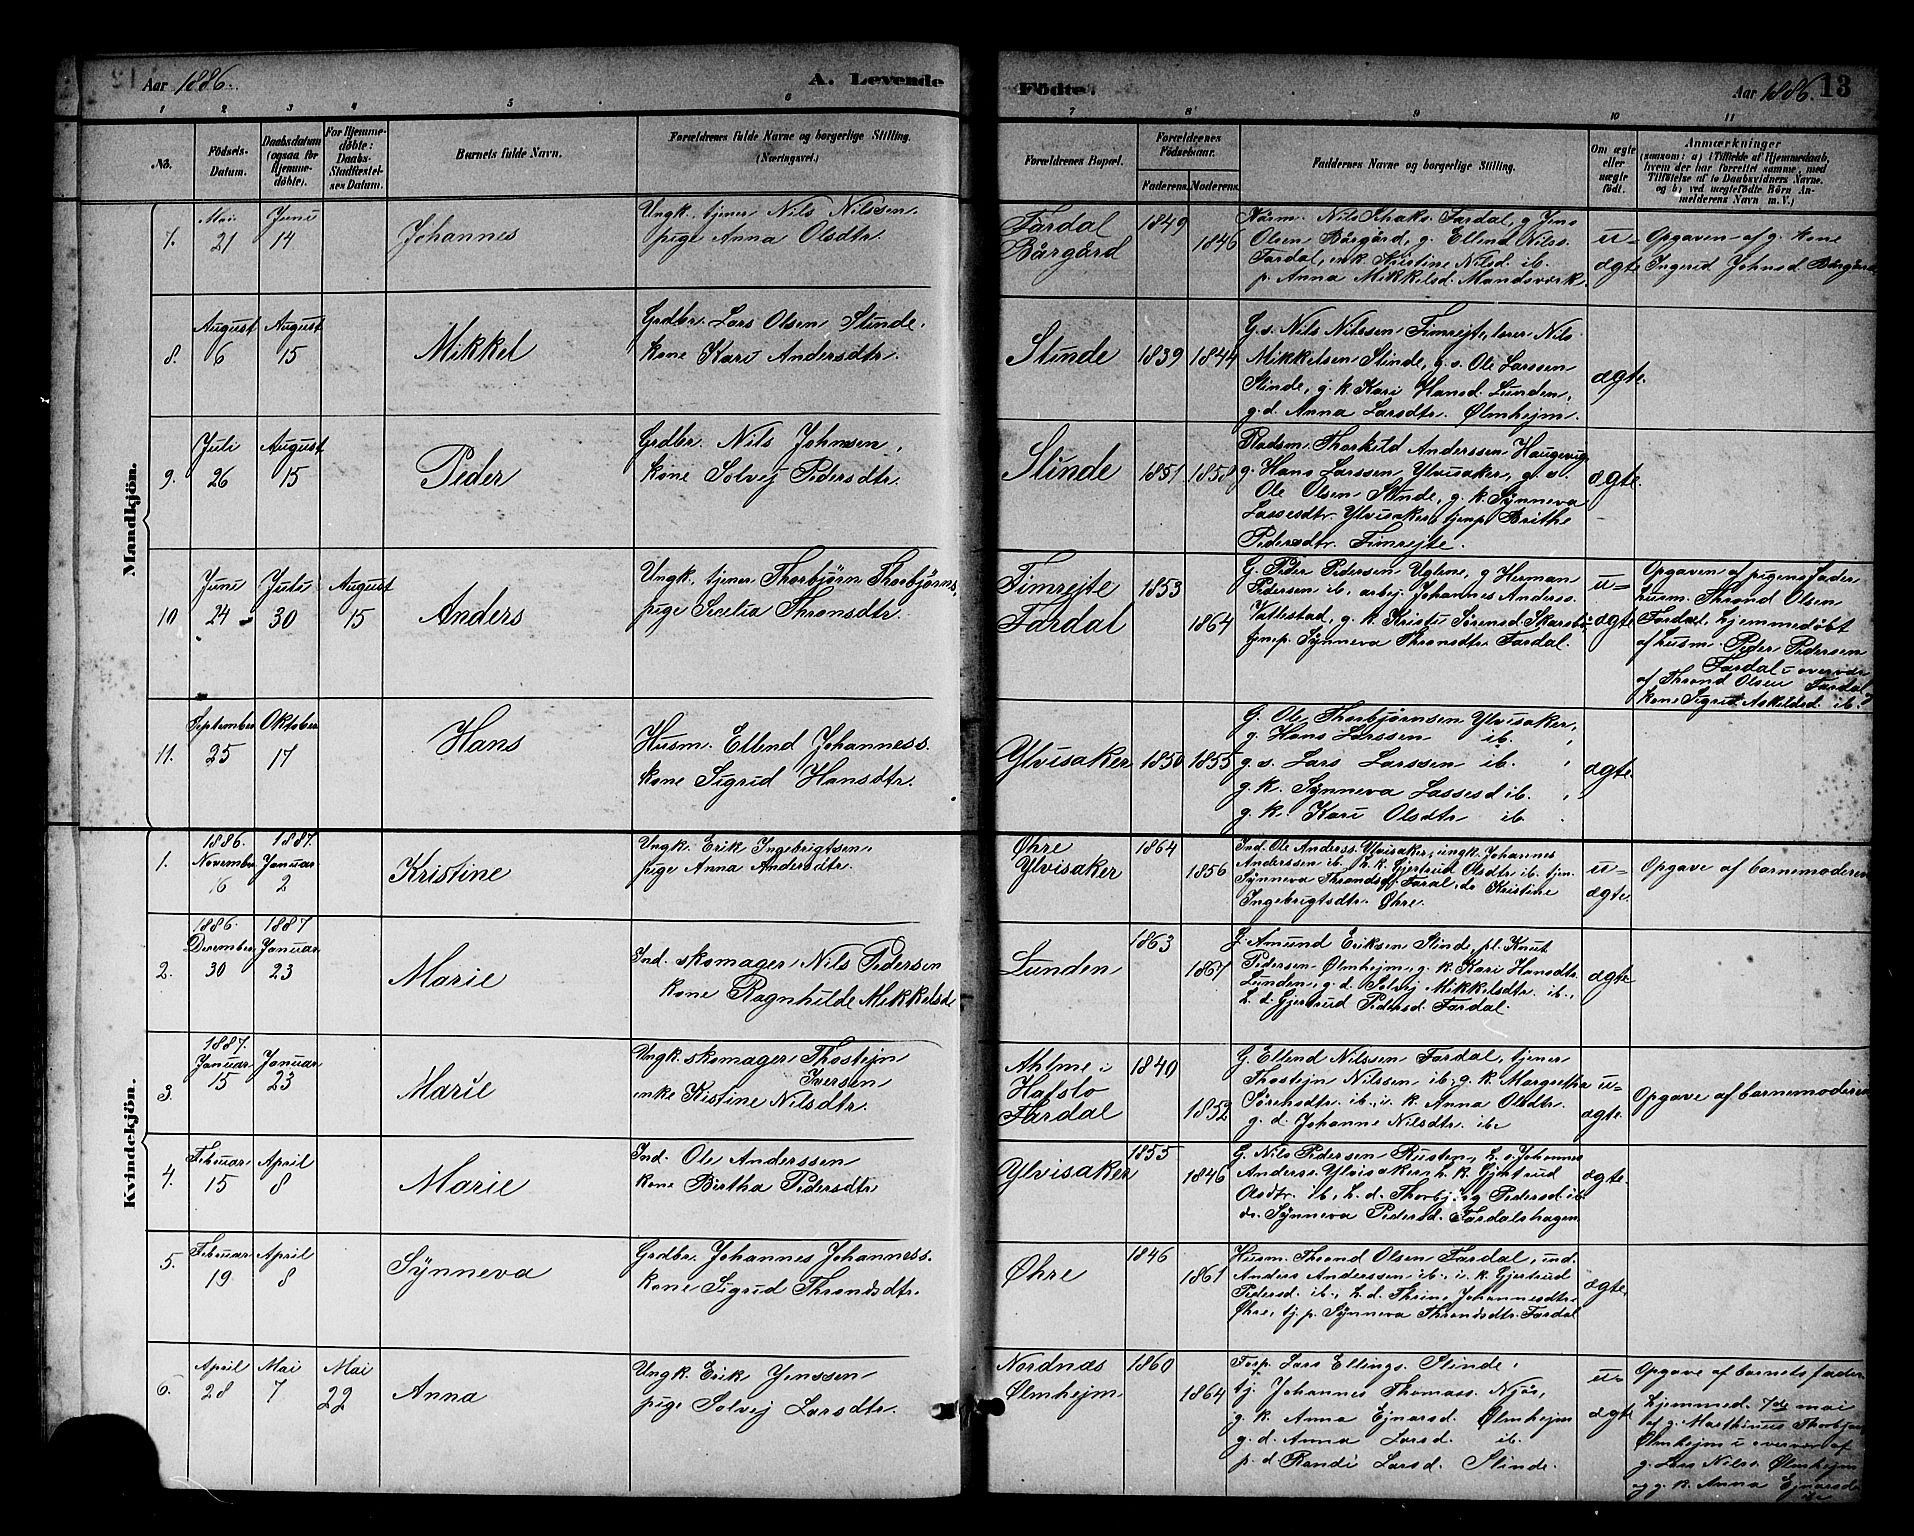 Aar 1886. A. Levende
1 2 3 4 5 6
No.
Fødsels-
Datum.
Daabsdatum
(ogsaa for
Hjemme-
døbte).
For Hjemme-
døbte:
Daabs-
Stadfæstel-
ses Datum.
Barnets fulde Navn.
Forældrenes fulde Navne og borgerlige Stilling.
(Næringsvei.)
Mandkjön.
7.
Mai
21
Juni
14
Johannes
Ungk. tjener Nils Nilssen.
pige Anna Olsdtr.
8.
August
6
August
15
Mikkel
Grdbr. Lars Olsen Slinde.
kone Kari Andersdtr.
9.
Juli
26
August
15
Peder
Grdbr. Nils Johnsen,
kone Solvej Pedersdtr.
10
Juni
24
Juli
30
August
15
Anders
Ungk. tjener Thorbjørn Thorbjørns.
pige Secelia Thronsdtr.
11.
September
25
Oktober
17
Hans
Husm. Ellend Johanness.
kone Sigrid Hansdtr.
Kvindekjön.
1.
1886.
November
16
1887.
Januar
2
Kristine
Ungk. Erik Ingebrigtsen.
pige Anna Andersdtr.
2.
1886.
December
30
1887
Januar
23
Marie
Ind. skomager Nils Pedersen
kone Ragnhilde Mikkelsd.
3.
1887.
Januar
15
Januar
23
Marie
Ungk. skomager Thostejn
Iversen
enke Kistine Nilsdtr.
4.
Februar
15
April
8
Marie
Ind. Ole Anderssen
kone Birtha Pedersdtr
5.
Februar
19
April
8
Synneva
Grdbr. Johannes Johanness.
kone Sigrid Throndsdtr.
6.
April
28
Mai
7
Mai
22
Anna
Ungk. Erik Jenssen
pige Solvej Larsdtr.
Födte. Aar 1886. 13
7 8 9 10 11
Forældrenes Bopæl.
Forældrenes
Fødselsaar.
Faderens. Moderens.
Faddernes Navne og borgerlige Stilling.
Om ægte
eller
uægte
født.
Anmærkninger
(saasom: a) i Tilfælde af Hjemmedaab,
hvem der har forrettet samme, med
Tilføielse af to Daabsvidners Navne.
og b) ved uægtefødte Børn An-
melderens Navn m. V.)
Fardal
Bårgård
1849
1846
Nils Fardal, g. Jens
Olsen Bårgård, g. Ellend Nilss.
Fardal, enk. Kristine Nilsd. ib.
p. Anna Mikkelsd. Mandsverk.
u-
ægte
Opgaven af g. kone
Ingerid Johnsd Bårgård
Slinde
1839
1844
G. s. Nils Nilssen Fimrejte, lærer Nils
Mikkelsen Slinde, g. s. Ole Larssen
Slinde, g. k. Kari Hansd. Lunden,
g. d. Anna Larsdtr. Ølmhejm.
ægte.
Slinde
1851
1858
Radsm. Thorkild Anderssen Haugevig
g. Hans Larssen Ylvisaker, g. s.
Ole Olsen Slinde, g. k. Synneva
Lassesdtr. Ylvisaker, tjenp. Brithe
Pedersdtr. Fimrejte.
ægte.
Fimrejte
Fardal
1853
1864
G. Peder Pedersen Uglene, g Herman
Pedersen ib, arbej. Johannes Anderss.
Vattestad, g. k. Kristi Sørensd. Skarsbø,
tjenp. Synneva Thronsdtr. Fardal.
u-
ægte
Opgaven af pigens fader
husm. Thrond Olsen
Fardal, hjemmedøbt
af husm. Peder Pedersen
Fardal i overvær
af Thrond Olsen Fardal og
kone Sigrid Askeldsd. ib.
Ylvisaker
1850
1855
G. Ole Thorbjørnsen Ylvisaker,
g. Hans Larssen ib.
g. s. Lars Larssen ib.
g. k. Synneva Lassesd ib.
g. k. Kari Olsdtr ib.
ægte.
Øhre
Ylvisaker
1864
1856
Ind. Ole Anderss. Ylvisaker, ungk. Johannes
Anderssen ib. k. Gjertrud Olsdtr ib. tjen.
Synneva Throndsd. Fardal, do Kristine
Ingebrigtsdtr. Øhre.
u-
ægte.
Opgave af barnemoderen
Lunden
1863
1867
Amund Eriksen Slinde, pl. Knut
Pedersen Ølmhejm, g. k. Kari Hansdtr.
Lunden, g. d. Solvej Mikkelsdtr. ib.,
h. d. Gjertrud Pedersd. Fardal.
ægte
Ahlme i
Hafslo
Fardal
1840
1852
G. Ellend Nilssen Fardal, tjener
Thostejn Nilssen ib, g. k. Margretha
Sørensdtr. ib., i. k. Anna Olsdtr.
g. d. Johanne Nilsdtr. ib.
u-
ægte.
Opgave af barnemoderen
Ylvisaker
1855
1846
G. Nils Pedersen Rusten, Johannes
Anderss. Ylvisaker, h. k. Gjertrud
Olsdtr. ib., h. d. Thorbjørg Pedersd. ib
do. Synneva Pedersd. Fardalshagen
ægte.
Øhre
1846
1861
Husm. Thrond Olsen Fardal, ind.
Anders Anderssen ib., i. k. Gjertrud
Pedersd. ib., h. d. Thrine Johannesdtr.
Øhre, tj. p. Synneva Throndsdtr. Fardal
ægte.
Nordnæs
Ølmhejm
1860
1864
Forp. Lars Ellings. Slinde,
tj. Johannes Thomass. Njøs,
g. k. Anna Ejnarsd. Ølmhejm
g. d. Anna Larsd. ib.
p. d. Randi Larsd. Slinde.
u-
ægte
Opgave af barnets fader
hjemmed. 7de mai
af g. Marthinus Thorbjørns
Ølmhejm i overvær af
g. Lars Nils. Ølmhejm
og g. k. Anna Ejnarsd.
ib